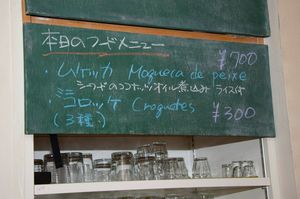 本日のフードメニュー
¥700
・ムケッカ Moqueca de peixe
シーフードのココナッツオイル煮込み ライス付
・ミニコロッケ Croquetes ¥300
(3種)